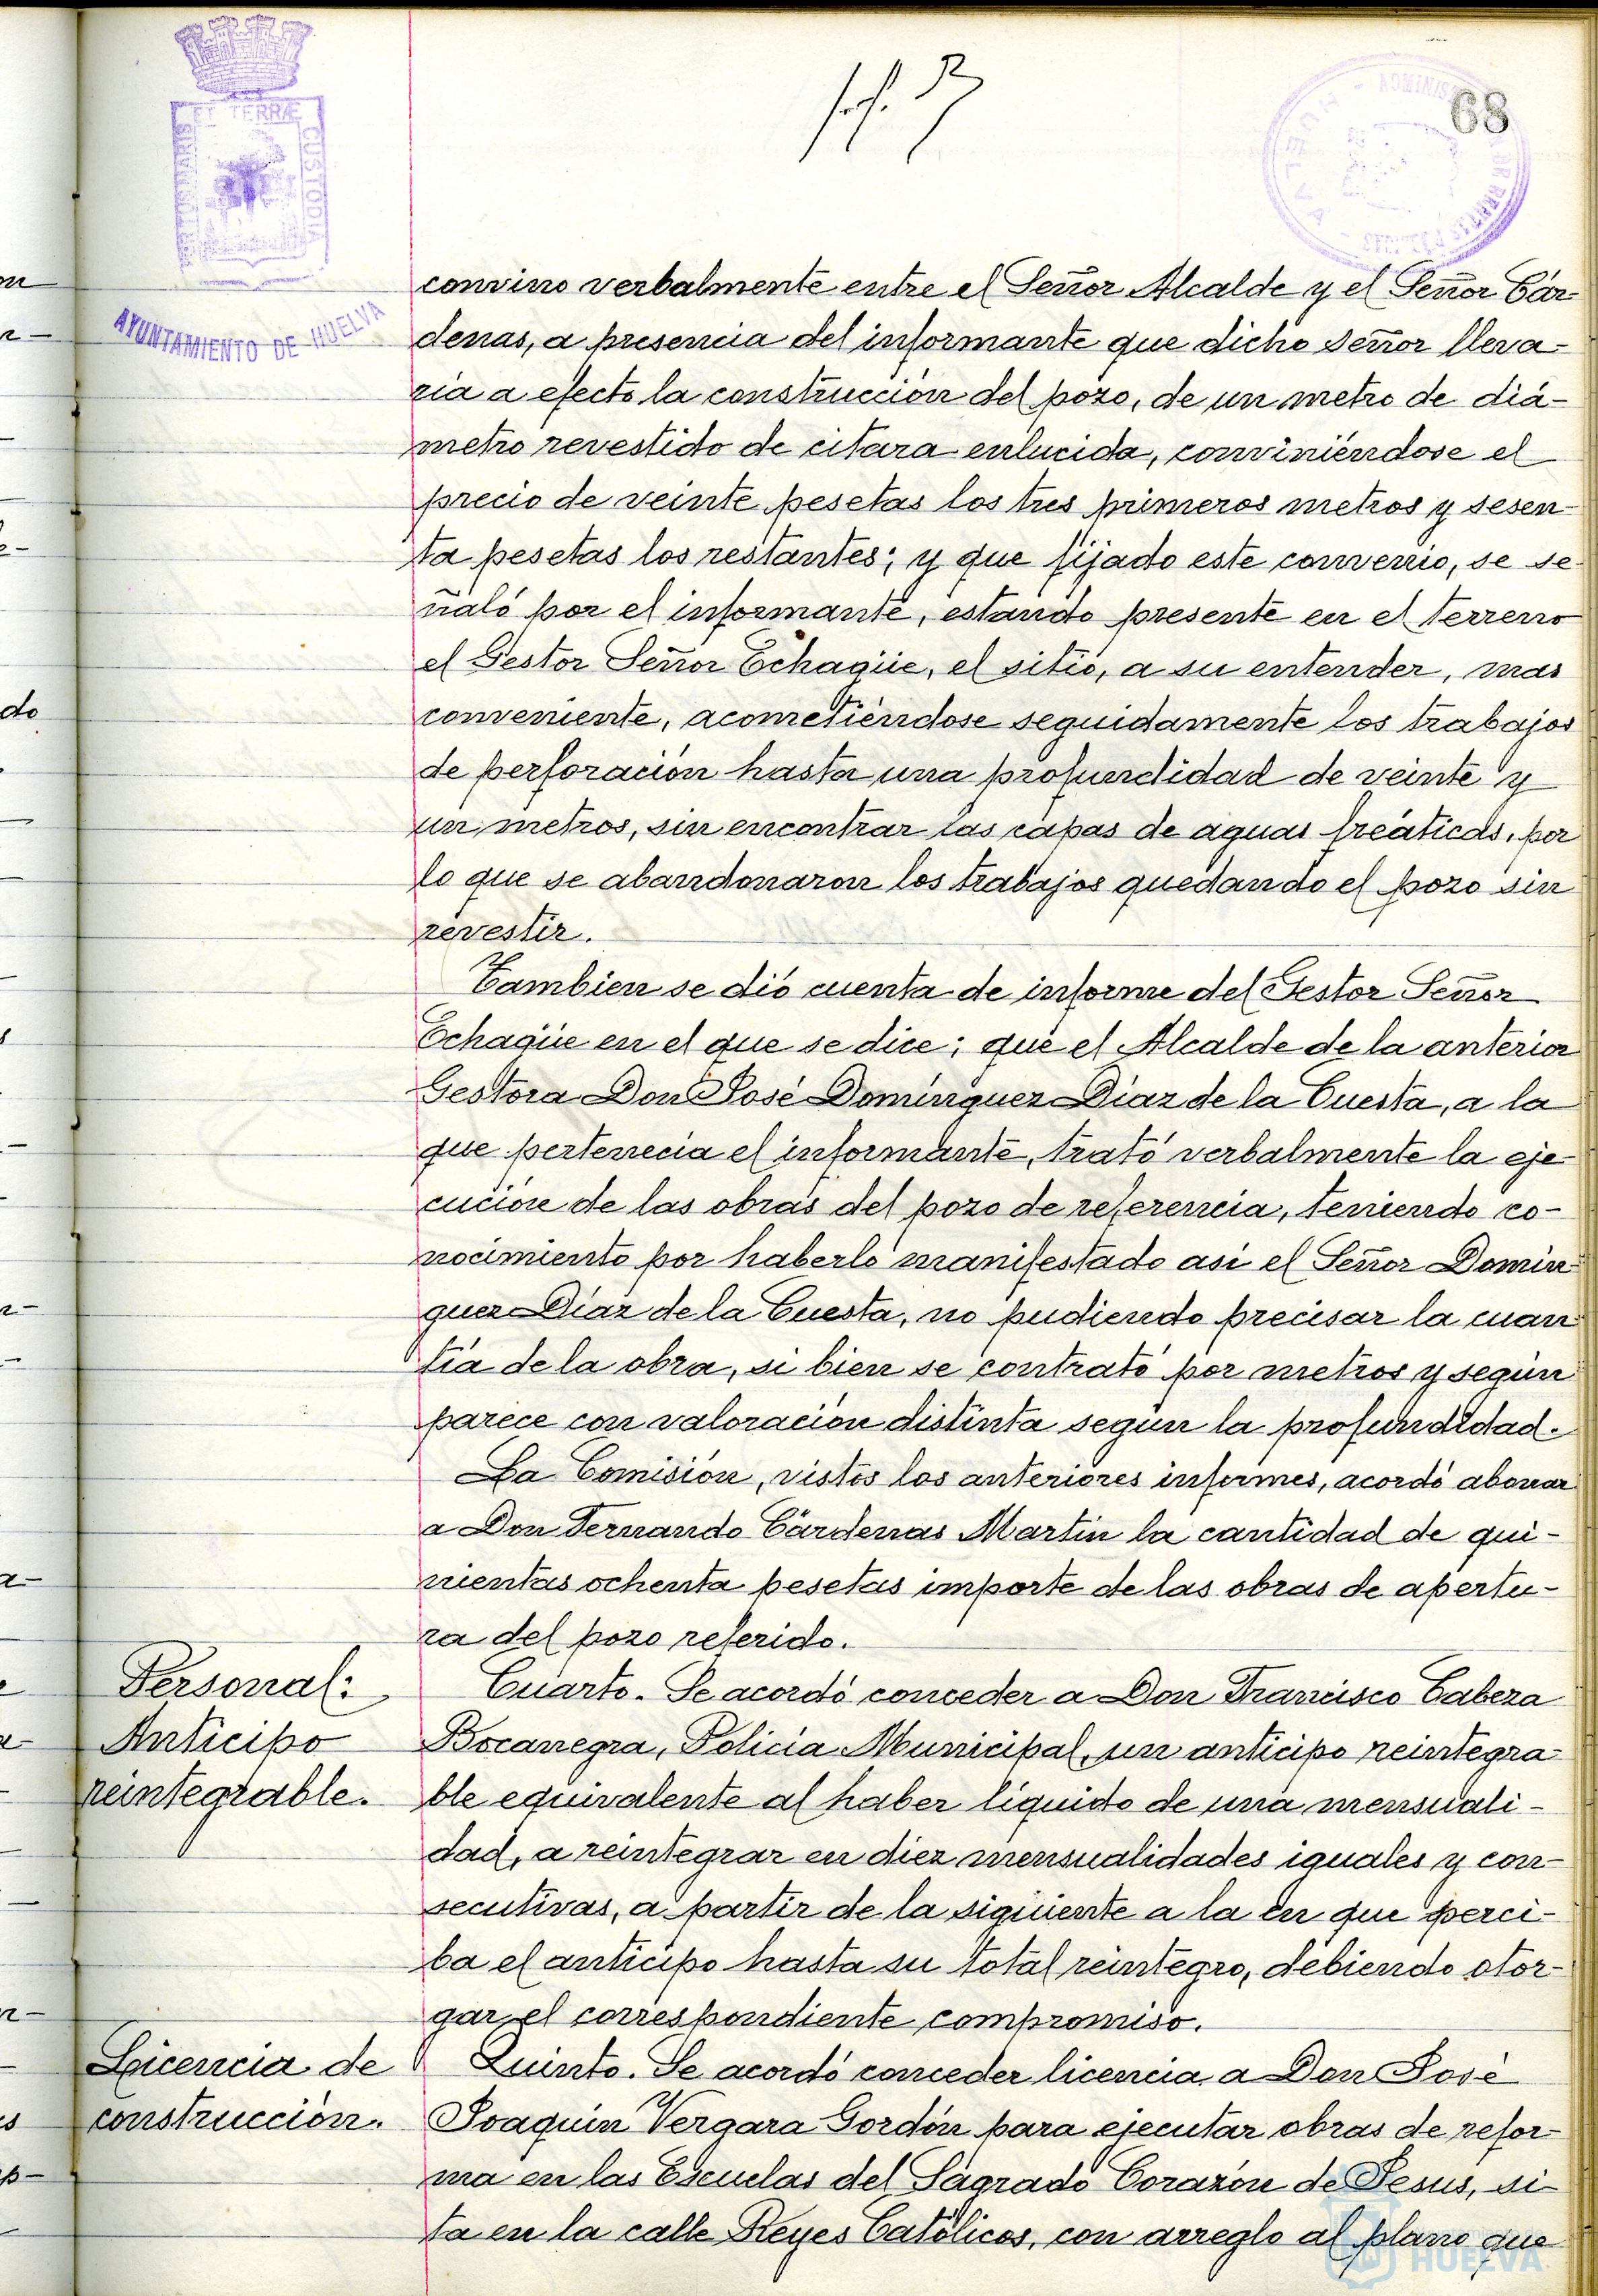 68
PORTUS MARIS ET TERRÆ CUSTODIA
AYUNTAMIENTO DE HUELVA
HUELVA
convino verbalmente entre el Señor Alcalde y el Señor Cár-
denas, a presencia del informante que dicho señor lleva-
ria a efecto la construcción del pozo, de un metro de diá-
metro revestido de citara enlucida, conviniéndose el
precio de veinte pesetas los tres primeros metros y sesen-
ta pesetas los restantes; y que fijado este convenio, se se-
ñaló por el informante, estando presente en el terreno
el Gestor Señor Echagüe, el sitio, a su entender, mas
conveniente, acometiéndose seguidamente los trabajos
de perforación hasta una profundidad de veinte y
un metros, sin encontrar las capas de aguas freáticas, por
lo que se abandonaron los trabajos quedando el pozo sin
revestir.
Tambien se dió cuenta de informe del Gestor Señor
Echagüe en el que se dice; que el Alcalde de la anterior
Gestora Don José Domínguez Díaz de la Cuesta, a la
que pertenecia el informante, trató verbalmente la eje-
cución de las obras del pozo de referencia, teniendo co-
nocimiento por haberlo manifestado asi el Señor Domín-
guez Díaz de la Cuesta, no pudiendo precisar la cuan-
tía de la obra, si bien se contrató por metros y según
parece con valoración distinta según la profundidad.
La Comisión, vistos los anteriores informes, acordó abonar
a Don Fernando Cárdenas Martín la cantidad de qui-
nientas ochenta pesetas importe de las obras de apertu-
ra del pozo referido.
Personal:
Anticipo
reintegrable.
Cuarto. Se acordó conceder a Don Francisco Cabeza
Bocanegra, Policía Municipal, un anticipo reintegra-
ble equivalente al haber líquido de una mensuali-
dad, a reintegrar en diez mensualidades iguales y con-
secutivas, a partir de la siguiente a la en que perci-
ba el anticipo hasta su total reintegro, debiendo otor-
gar el correspondiente compromiso.
Licencia de
construcción.
Quinto. Se acordó conceder licencia a Don José
Joaquín Vergara Gordón para ejecutar obras de refor-
ma en las Escuelas del Sagrado Corazón de Jesus, si-
ta en la calle Reyes Católicos, con arreglo al plano que
HUELVA